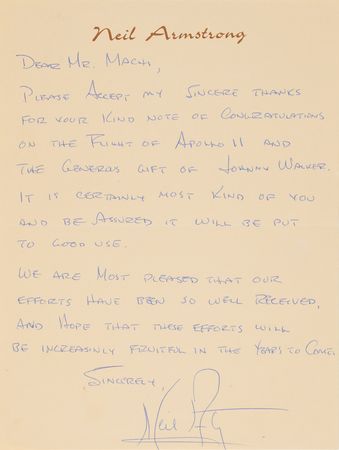 Neil Armstrong
DEAR MR. MACHI,
PLEASE ACCEPT MY SINCERE THANKS
FOR YOUR KIND NOTE OF CONGRATULATIONS
ON THE FLIGHT OF APOLLO 11 AND
THE GENEROUS GIFT OF JOHNNY WALKER.
IT IS CERTAINLY MOST KIND OF YOU
AND BE ASSURED IT WILL BE PUT
TO GOOD USE.
WE ARE MOST PLEASED THAT OUR
EFFORTS HAVE BEEN SO WELL RECEIVED,
AND HOPE THAT THESE EFFORTS WILL
BE INCREASINLY FRUITFUL IN THE YEARS TO COME.
SINCERELY,
Neil A